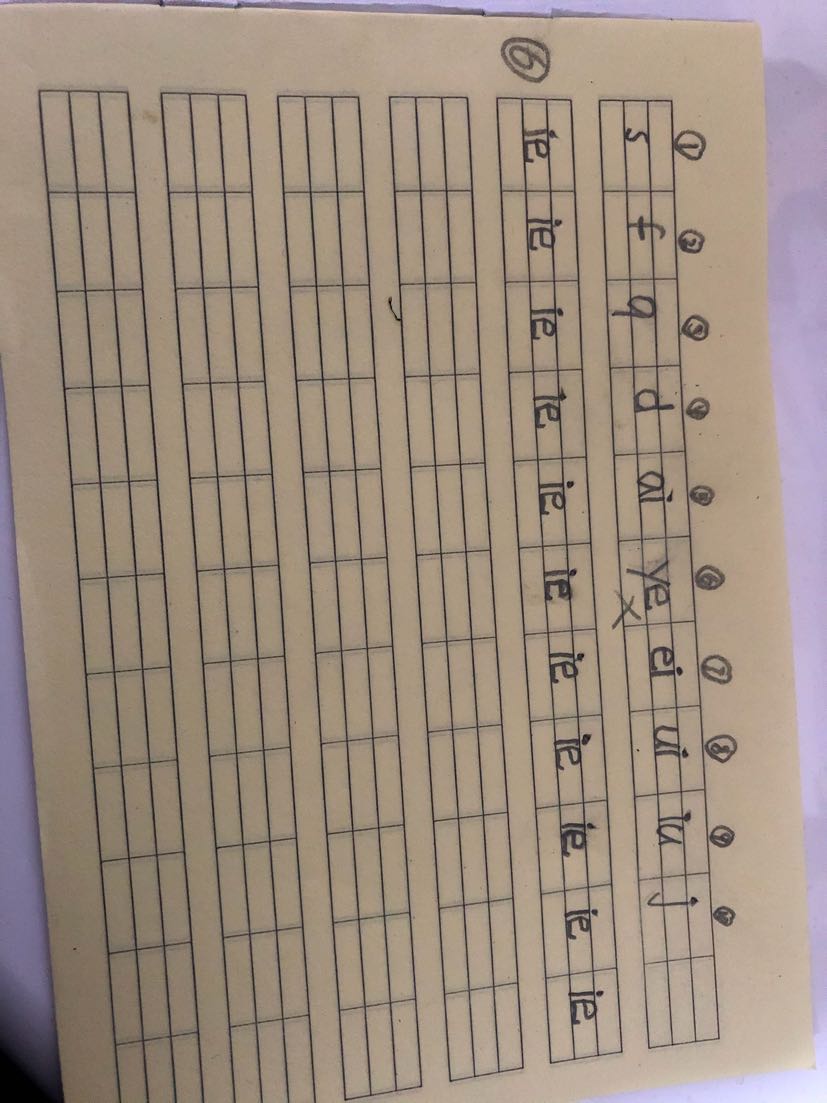 ① ② ③ ④ ⑤ ⑥ ⑦ ⑧ ⑨ ⑩
s f q d ai ye ei ui iu j
×
⑥
ie ie ie ie ie ie ie ie ie ie ie